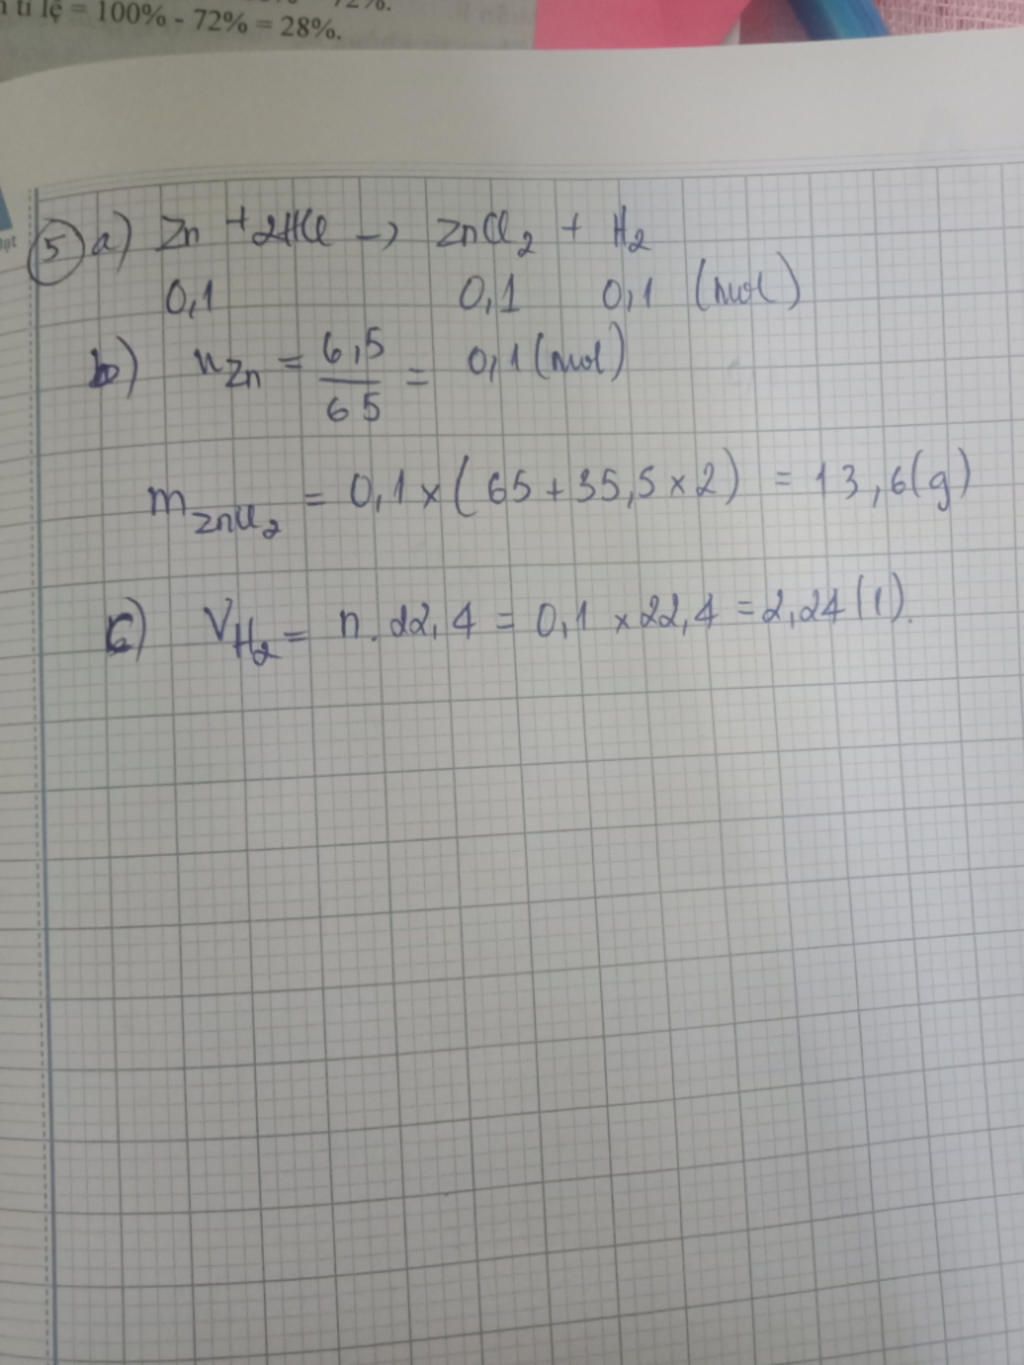 tỉ lệ = 100% - 72% = 28%.
5 a) Zn + 2HCl -> ZnCl2 + H2
0,1 0,1 0,1 (mol)
b) nZn = 6,5/65 = 0,1 (mol)
mZnCl2 = 0,1 x (65 + 35,5 x 2) = 13,6 (g)
c) VH2 = n. 22,4 = 0,1 x 22,4 = 2,24 (l).